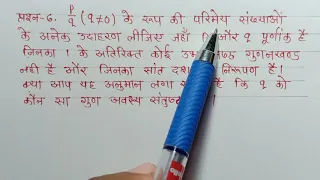 प्रश्न-6. p/q (q≠0) के रूप की परिमेय संख्याओं
के अनेक उदाहरण लीजिए जहाँ और q पूर्णांक हैं
जिनका 1 के अतिरिक्त कोई गुणनखण्ड
नहीं है और जिनका सांत निरूपण है।
क्या आप यह अनुमान लगा है कि q को
कौन सा गुण अवश्य